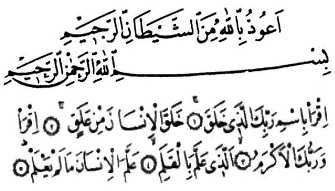 اَعُوذُ بِاللّٰهِ مِنَ الشَّيْطَانِ الرَّجِيْمِ
بِسْــــــمِ اللّٰهِ الرَّحْمٰنِ الرَّحِيْمِ
اِقْرَأْ بِاسْمِ رَبِّكَ الَّذِي خَلَقَ ۝١ خَلَقَ الْاِنْسَانَ مِنْ عَلَقٍ ۝٢ اِقْرَأْ
وَرَبُّكَ الْاَكْرَمُ ۝٣ الَّذِي عَلَّمَ بِالْقَلَمِ ۝٤ عَلَّمَ الْاِنْسَانَ مَا لَمْ يَعْلَمْ ۝٥